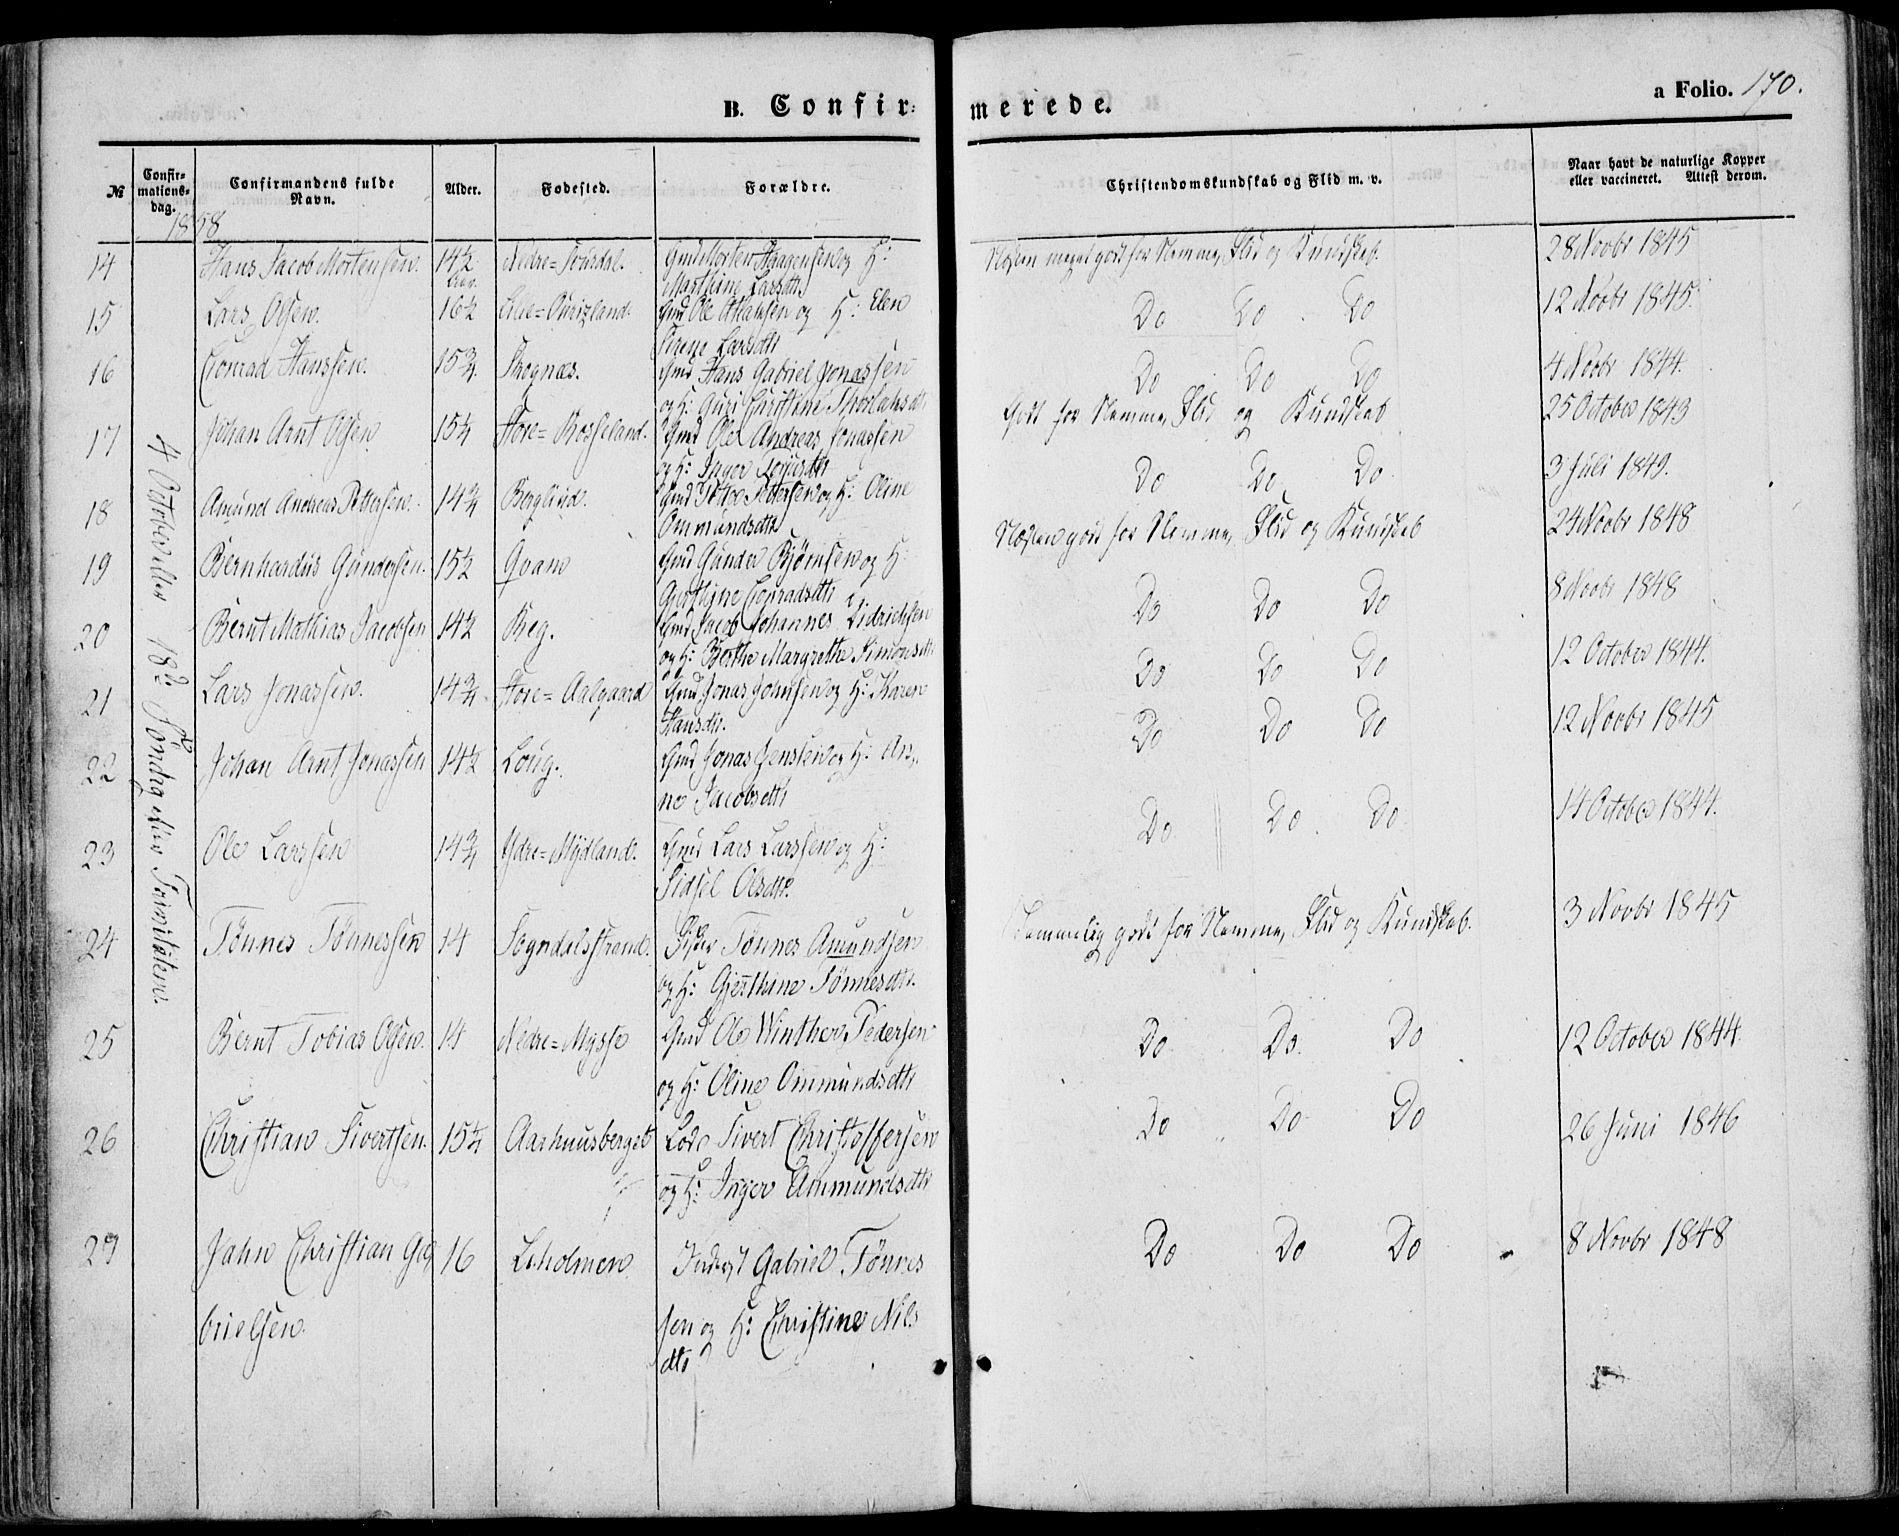 B. Confir-
merede.
a Folio. 170.
№
Confir-
mations-
dag.
Confirmandens fulde
Navn.
Alder.
Fødested.
Forældre.
Christendomskundskab og Flid m. v.
Naar havt de naturlige Kopper
eller vaccineret. Attest derom.
1858
4 October eller 18de Søndag efter Trinitatem.
14 Hans Jacob Mortensen. 14½ Aar. Nedre= Gmd Morten Haagensen og H: Næsten meget godt for Nemme, Flid og Kundskab. 28 Novbr 1845
Marthine Larsdtr
15 Lars Olsen. 16½ Gmd Ole og H: Elen Do Do Do 12 Novbr 1845.
Sirene Larsdtr
16 Conrad Hanssen. 15¾ Skognæs. Gmd Hans Gabriel Jonassen Do Do Do 4 Novbr 1844.
og H: Guri Christine
17 Johan Arnt Olsen 15¼ Store=Rosseland. Gmd Ole Andreas Jonassen Godt for Nemme, Flid og Kundskab 25 October 1843
og H: Inger
18 Amund Andreas Pettersen. 14¾ Berglind. Gmd Pettersen og H: Oline Do Do Do 3 Juli 1849.
Ommundsdtr
19 Bernhardus Gundersen. 15½ Qvam Gmd Gunder Bjørnsen og H: Næsten godt for Nemme, Flid og Kundskab 24 Novbr 1848
Conradsdtr
20 Bernt Mathias Jacobsen 14½ Reg. Gmd Jacob Johannes Didrichsen Do Do Do 8 Novbr 1848
og H: Berthe Margrethe Simonsdtr
21 Lars Jonassen. 14¾ Store=Aalgaard Gmd Jonas Johnsen og H: Karen Do Do Do 12 October 1844.
Hansdtr.
22 Johan Arnt Jonassen 14½ Loug. Gmd Jonas Jenssen og H: An- Do Do Do 12 Novbr 1845
ne Jacobsdtr
23 Ole Larssen 14¾ Ydre=Mydland. Gmd Lars Larssen og H: Do Do Do 14 October 1844.
Sidsel Olsdtr.
24 Tønnes Tønnessen 14 Sogndalsstrand. Fisker Tønnes Amundsen Temmelig godt for Nemme, Flid og Kundskab. 3 Novbr 1845
og H: Gjerthine Tønnesdtr.
25 Bernt Tobias Olsen. 14 Nedre=Mysse Gmd Ole Winther Pedersen Do Do Do 12 October 1844.
og H: Oline Ommundsdtr
26 Christian Sivertsen. 15¼ Aarhuusberget Lods Sivert Christoffersen Do Do Do 26 Juni 1846
og H: Inger Ommundsdtr
27 Jahn Christian Ga- 16 L:holmen Gabriel Tønnes Do Do Do 8 Novbr 1848
brielsen. sen og H: Christine Nils
dtr